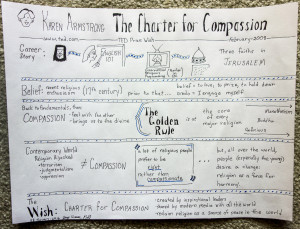 KAREN ARMSTRONG The Charter for Compassion
www.ted.com TED Prize Wish February 2008
Career Story
ENGLISH LIT
Three Faiths in
JERUSALEM
Belief: recent religious enthusiasm (17th century)
prior to that...
belief = to love, to prize, to hold dear
credo = I engage myself
Back to fundamentals, then
COMPASSION
- feel with the other
- brings us to the divine
The Golden Rule
is the core of every major religion
Confucius
Buddha
Contemporary World
Religion Hijacked
- terrorism
- judgmentalism
- oppression
≠ COMPASSION
a lot of religious people
prefer to be
right
rather than
compassionate
but, all over the world,
people (especially the young)
desire a change:
religion as a force for
harmony.
The Wish: CHARTER for COMPASSION
- created by inspirational leaders
- shared by modern media with all the world
- restores religion as a source of peace in the world.